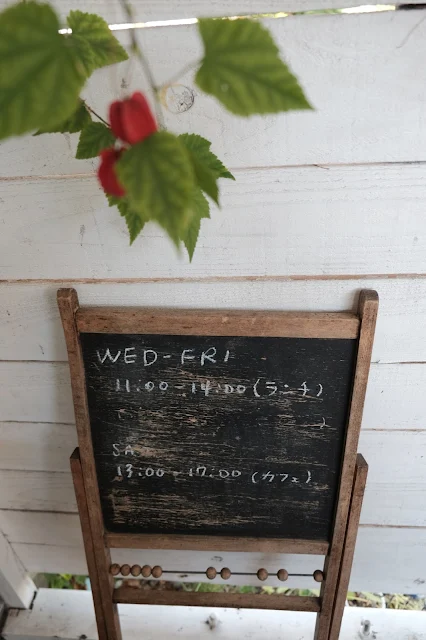 WED-FRI
11:00-14:00 (ランチ)
SA
13:00-17:00 (カフェ)